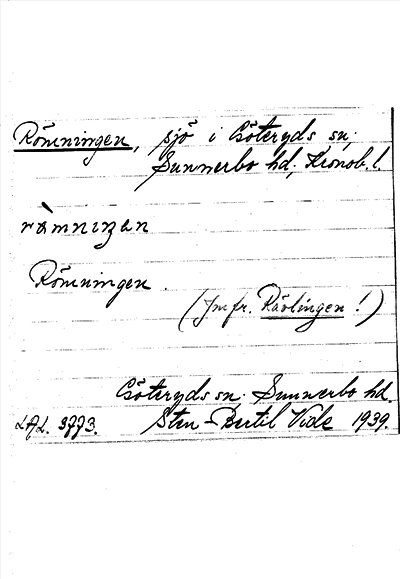 Römningen, sjö i Göteryds sn,
Sunnerbo hd, Kronob. l.
ràmnıŋan
Römningen.
(Jmfr. Rävlingen!)
Göteryds sn. Sunnerbo hd.
LAL. 3773. Sten-Bertil Vide 1939.